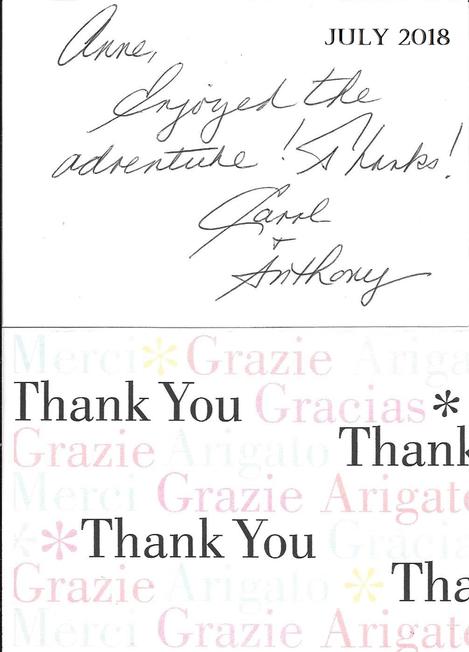 JULY 2018
Anne,
Enjoyed the
adventure! Thanks!
Carol
+
Anthony
Merci * Grazie Ariga
Thank You Gracias *
Grazie Arigato Thank
Merci Grazie Arigato
* * Thank You Gracia
Grazie Arigato * Tha
Merci Grazie Arigato